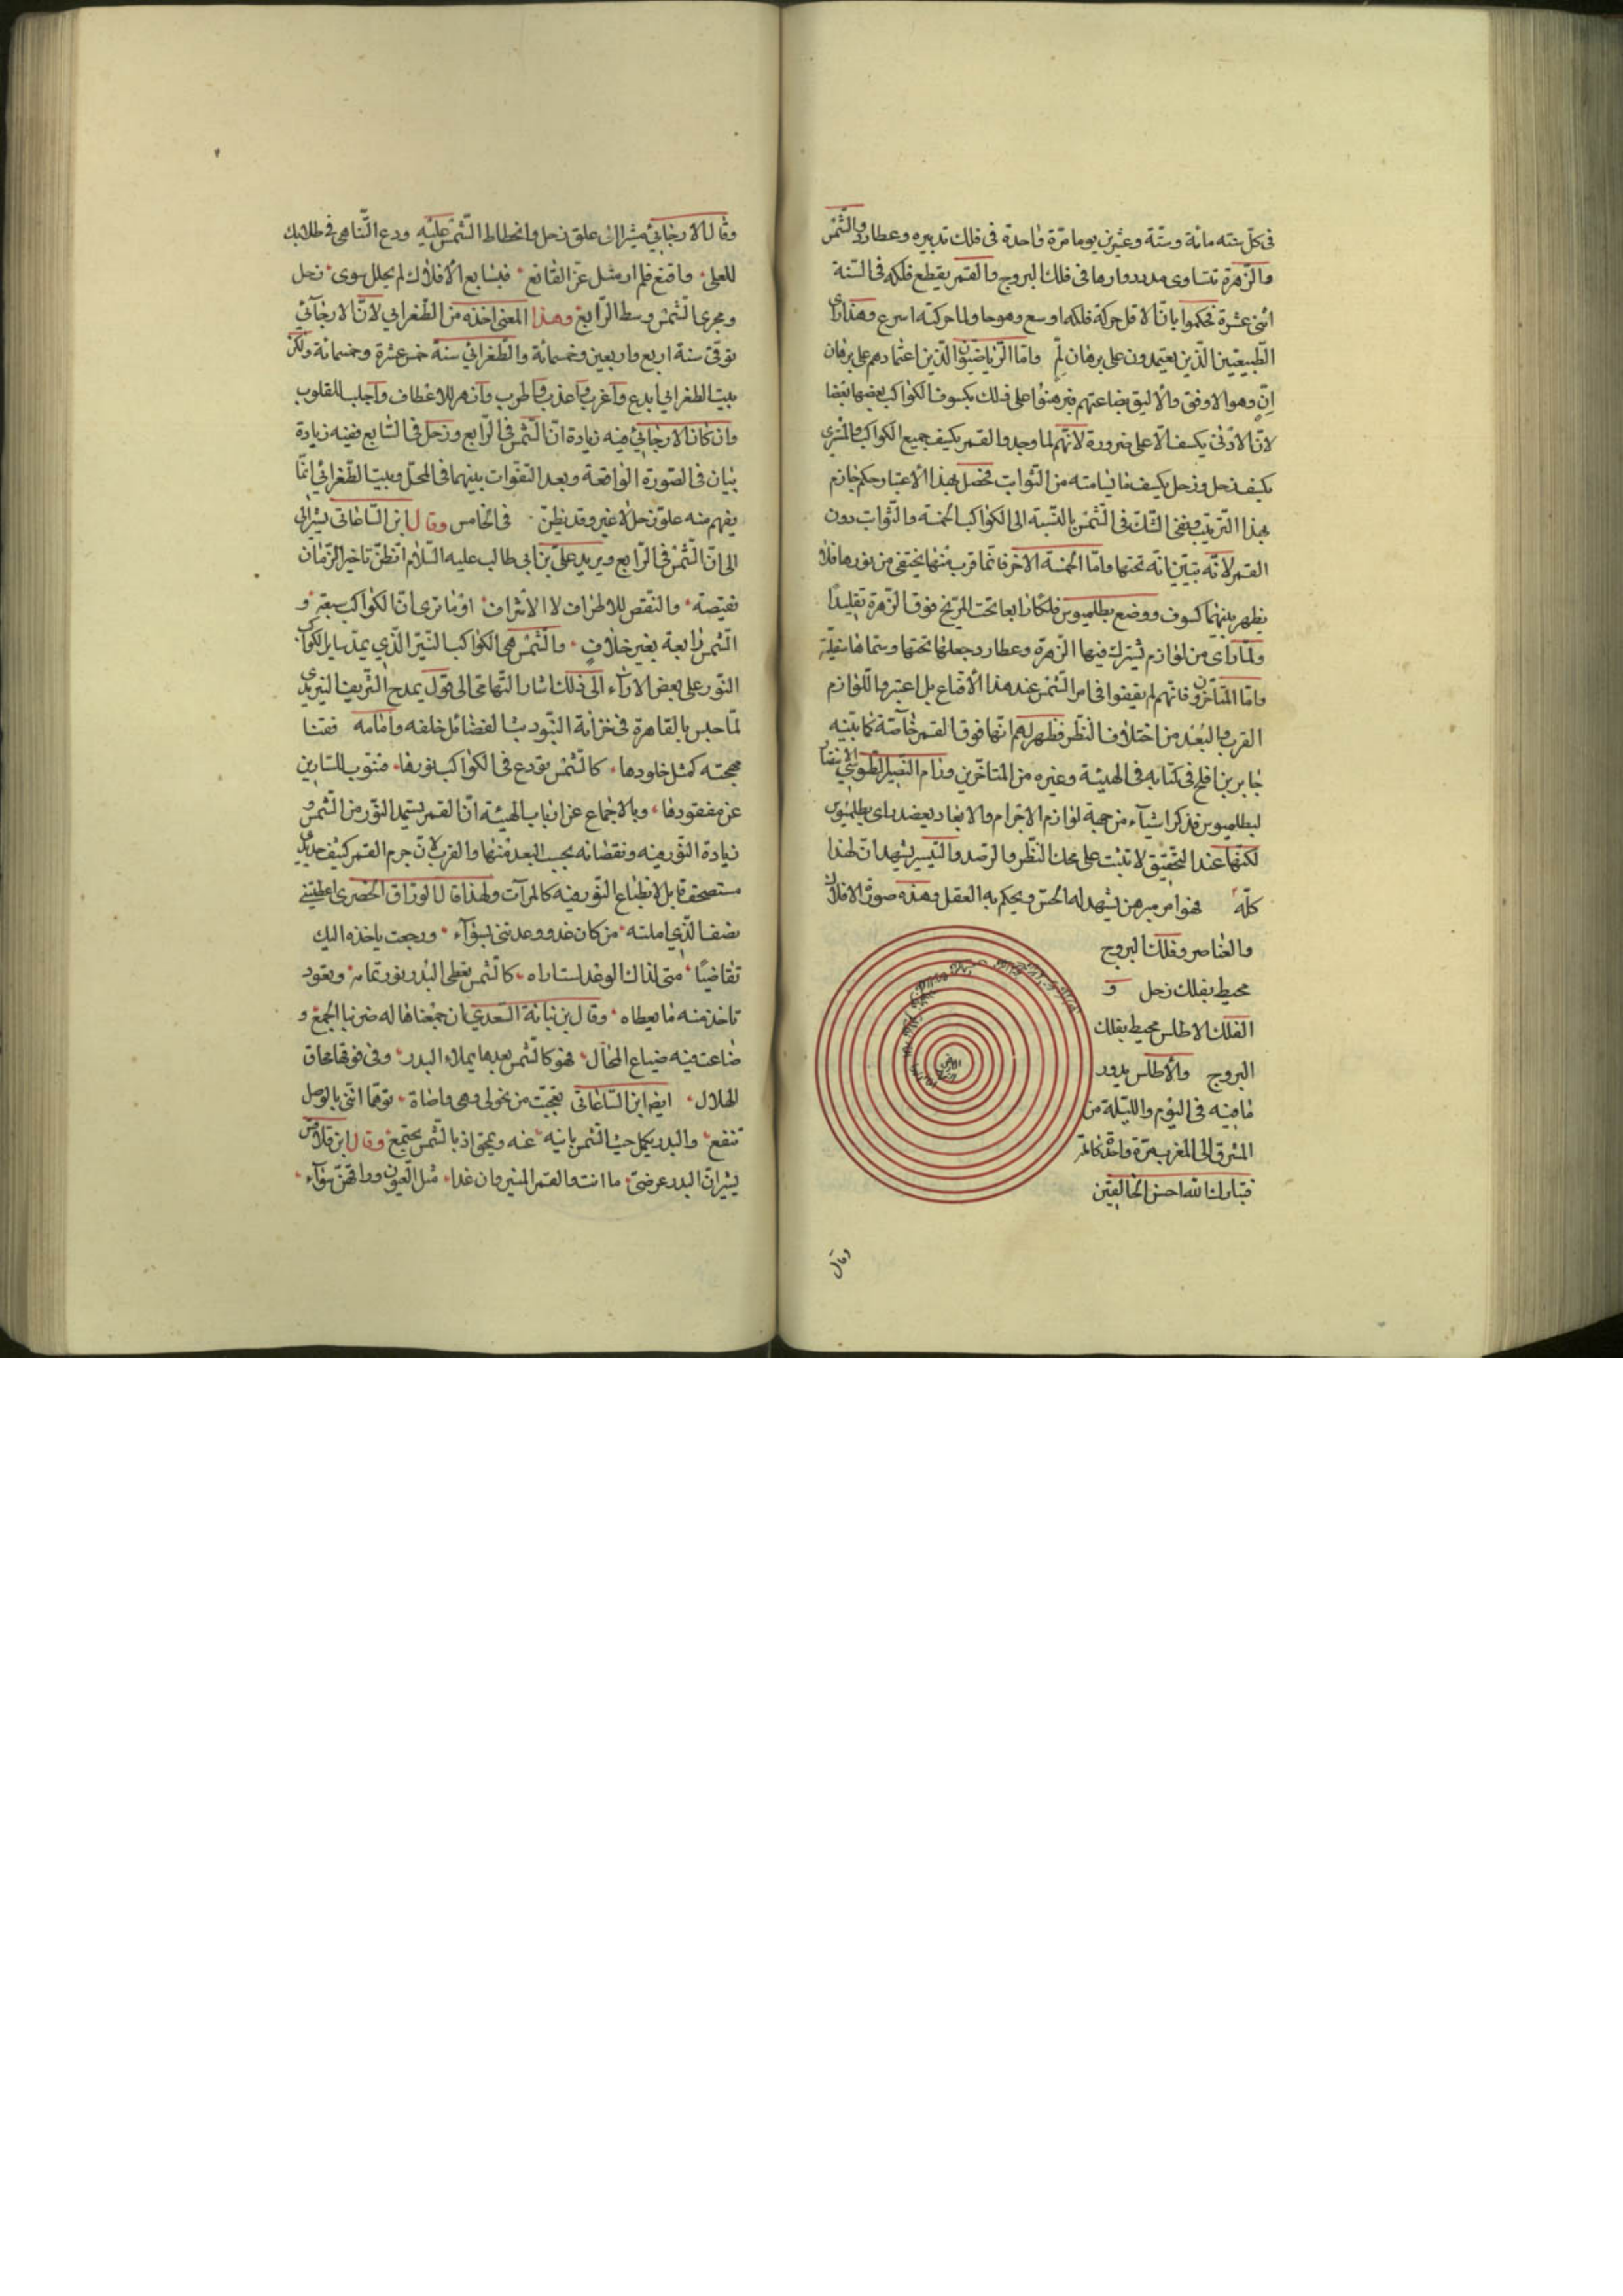 في كل سنة مائة وستة وعشرين يوما مرة واحدة في فلك تدبيره وعطارد والشمس
والزهرة تتساوى مدد دوارها في فلك البروج والقمر يقطع فلكه في السنة
اثنى عشرة فحكموا بان الاقل حركة فلكه اوسع وهو حاو لما حركته اسرع وهذا راى
الطبيعيين الذين يعتمدون على برهان لم واما الرياضيون الذين اعتمادهم على برهان
ان وهو الاوفق والاليق بصناعتهم فبرهنوا على ذلك بكسوف الكواكب بعضها بعضا
لان الادنى يكسف الاعلى ضرورة لانهم لما وجدوا القمر يكسف جميع الكواكب والمشترى
يكسف زحل وزحل يكسف ما يسامته من الثوابت فحصل بهذا الاعتبار حكم جازم
بهذا الترتيب وبقى الشك في الشمس بالنسبة الى الكواكب الخمسة والثوابت دون
القمر لانه تبين انه تحتها واما الخمسة الاخر فانما قرب منها يختفى من نورها فلا
يظهر بينهما كسوف ووضع بطلميوس فلكا رابعا تحت المريخ فوق الزهرة تقليدا
ولما راى من لوازم تشترك فيها الزهرة وعطارد جعلها تحتها وسماها سفلية
واما المتاخرون فانهم لم يقفوا في امر الشمس عند هذا الاقناع بل اعتبروا اللوازم
القرب والبعد من اختلاف النظر فظهر لهم انها فوق القمر خاصة كما بينه
جابر بن افلح في كتابه في الهيئة وغيره من المتاخرين ورام النصير الطوسي الانتصار
لبطلميوس فذكر اشياء من جهة لوازم الاجرام والابعاد يعضد راى بطلميوس
لكنها عند التحقيق لا تثبت على محك النظر والرصد والتيسير يشهدان لهذا
كله فهو امر مبرهن يشهد له الحس ويحكم به العقل وهذه صورة الافلاك
والعناصر وفلك البروج
محيط بفلك زحل و
الفلك الاطلس محيط بفلك
البروج والاطلس يدور
ما فيه في اليوم والليلة من
المشرق الى المغرب مرة واحدة كما تر
فتبارك الله احسن الخالقين
الارض
وقال
وقال الارجاني مشيرا الى علو زحل وانحطاط الشمس عليه ودع التناهى في طلابك
للعلى واقنع فلم ار مثل عز القانع فبسابع الافلاك لم يحلل سوى زحل
ومجرى الشمس وسط الرابع وهذا المعنى اخذه من الطغرايي لان الارجاني
توفي سنة اربع واربعين وخمسمائة والطغراني سنة خمس عشرة وخمسمائة ولكن
بيت الطغراني ابدع واغرب واعذب واطرب وانهر للاعطاف واجلب للقلوب
وان كان الارجاني فيه زيادة ان الشمس في الرابع وزحل في السابع ففيه زيادة
بيان في الصورة الواقعة وبعد التفوات بينهما في المحل وبيت الطغراني انما
يفهم منه علو زحل لا غير وقد نظن في الخامس وقال ابن الساعاتي يشير الى
الى ان الشمس في الرابع ويريد علي بن ابي طالب عليه السلام اتظن تاخير الزمان
نقيصة والنقص للاطراف لا الاشراف اوما ترى ان الكواكب سبعة و
الشمس رابعة بغير خلاف والشمس هي الكواكب النير الذي يمد سائر الكواكب
النور على بعض الاراء الى ذلك اشار التهامى الى قول يمدح الشريف الزيدي
لما حبس بالقاهرة في خزانة البنود بث الفضائل خلفه وامامه فغتنا
مهجته كمثل خلودها كالشمس تودع في الكواكب نورها فتنوب للسارين
عن مفقودها وبالاجماع عن ارباب الهيئة ان القمر يستمد النور من الشمس و
زيادة النور فيه ونقصانه بحسب البعد منها والقرب لان جرم القمر كثيف حديدي
مستصحف قابل لانطباع النور فيه كالمرآت ولهذا قال الوراق الحضرى اعطيتني
نصف الذي املته من كان غدو وعدتنى بسوآء ورجعت ياخذه اليك
تقاضيا متى لذاك الوغد استاراه كالشمس يعطى البدر نور تمامه وبعود
تاخذ منه ما يعطاه وقال بن نباتة السعدي ان جمعناها له ضر بنا الجمع و
ضاعت فيه ضياع المحال فهو كالشمس بعدها يملاء البدر وفى قربها محاق
الهلال ايضم ابن الساعاتى تعجبت من نحولى وهى واضاة توهما اننى بالوصل
تنفع والبدر يكمل حيث الشمس بائنة عنه ويمحق اذ بالشمس يجتمع وقال ابن قلاقس
يشير ان البدر عرضى ما انت والقمر المنير وان غدا مثل العيون ودافهن سوآء